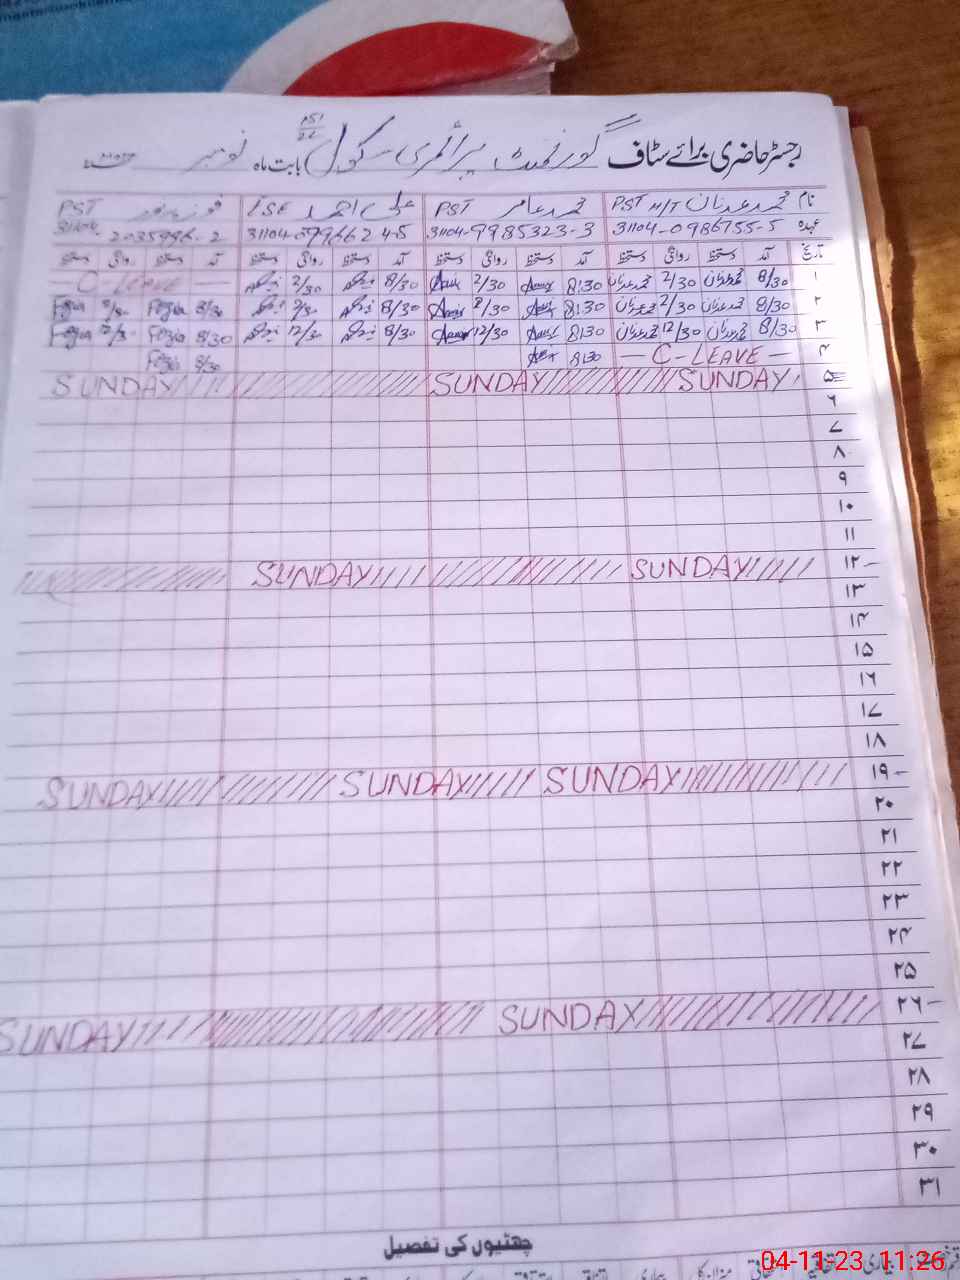 رجسٹر حاضری برائے سٹاف گورنمنٹ پرائمری سکول بابت ماہ نومبر
نام محمد عدنان PST H/T محمد عامر PST علی احمد ESE PST
عہدہ 31104-0986755-5 31104-9985323-3 31104- 31104-2035996-2
تاریخ آمد دستخط روانگی دستخط آمد دستخط روانگی دستخط آمد دستخط روانگی دستخط آمد دستخط روانگی دستخط
۱ 8/30 محمد عدنان 2/30 محمد عدنان 8:30 2/30 8/30 2/30 — C-LEAVE —
۲ 8/30 محمد عدنان 2/30 محمد عدنان 8:30 2/30 8/30 Fozia 8/30 Fozia
۳ 8/30 محمد عدنان 12/30 محمد عدنان 8:30 12/30 8/30 12/30 8/30 Fozia 12/30 Fozia
۴ — C-LEAVE — 8:30 8/30 Fozia
۵ SUNDAY SUNDAY SUNDAY
۶
۷
۸
۹
۱۰
۱۱
۱۲ SUNDAY SUNDAY
۱۳
۱۴
۱۵
۱۶
۱۷
۱۸
۱۹ SUNDAY SUNDAY SUNDAY
۲۰
۲۱
۲۲
۲۳
۲۴
۲۵
۲۶ SUNDAY SUNDAY
۲۷
۲۸
۲۹
۳۰
۳۱
چھٹیوں کی تفصیل
04-11-23 11:26